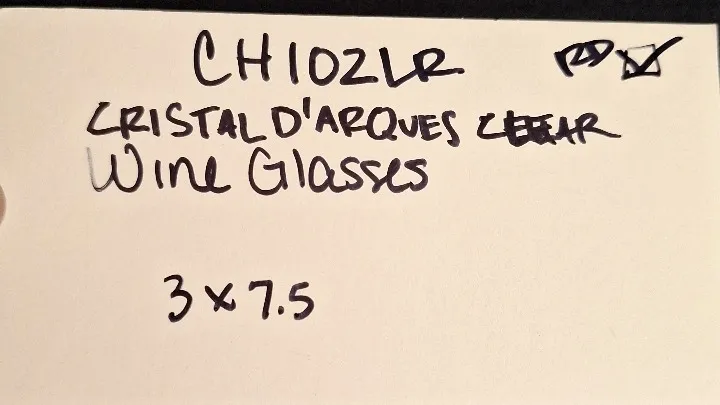 CH102LR RD
CRISTAL D'ARQUES CLEAR
Wine Glasses
3 x 7.5